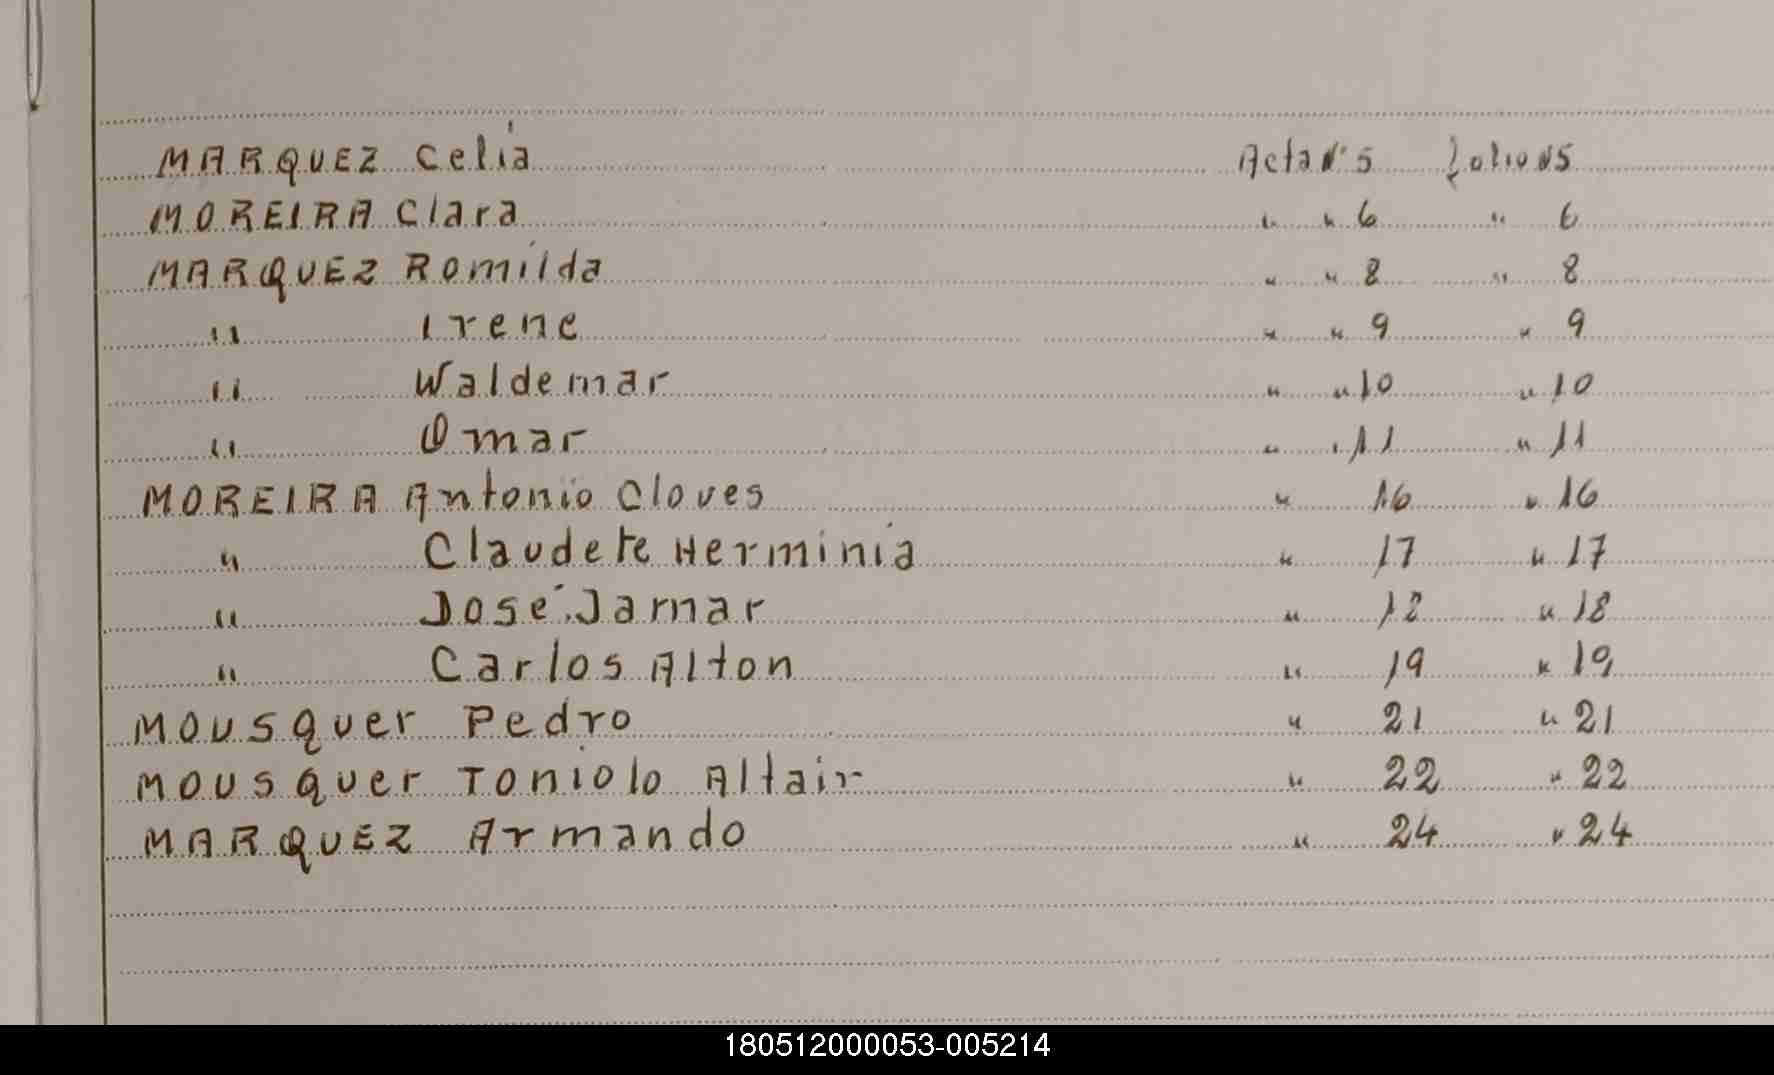 MARQUEZ Celia Acta Nº 5 folio Nº 5
MOREIRA Clara " " 6 " 6
MARQUEZ Romilda " " 8 " 8
" Irene " " 9 " 9
" Waldemar " " 10 " 10
" Omar " " 11 " 11
MOREIRA Antonio Cloves " 16 " 16
" Claudete Herminia " 17 " 17
" José Jamar " 18 " 18
" Carlos Alton " 19 " 19
MOUSquer Pedro " 21 " 21
MOUSquer Toniolo Altair " 22 " 22
MARQUEZ Armando " 24 " 24
180512000053-005214